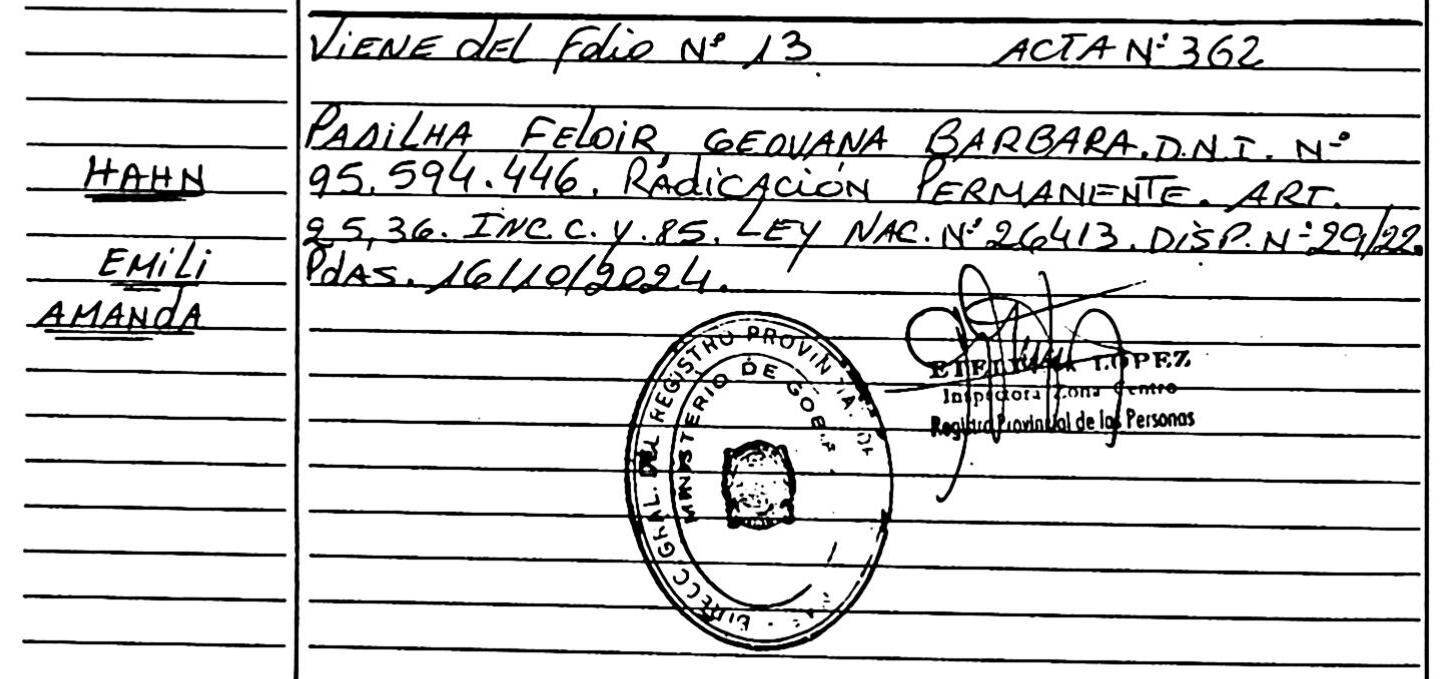 VIENE dEL Folio Nº 13. ACTA Nº 362
HAHN
EMiLi
AMANdA
PADiLHA FELOIR, GEOVANA BARBARA. D.N.I. Nº
95.594.446. RAdiCACIÓN PERMANENTE. ART.
25,36. INC. C. Y. 85. LEY NAC. Nº 26413. DISP. Nº 29/22.
PdAS. 16/10/2024.
DIRECC. GRAL. DEL REGISTRO PROVIN
MINISTERIO DE GOB
LOPEZ
Inspectora Zona Centro
Registro Provincial de las Personas